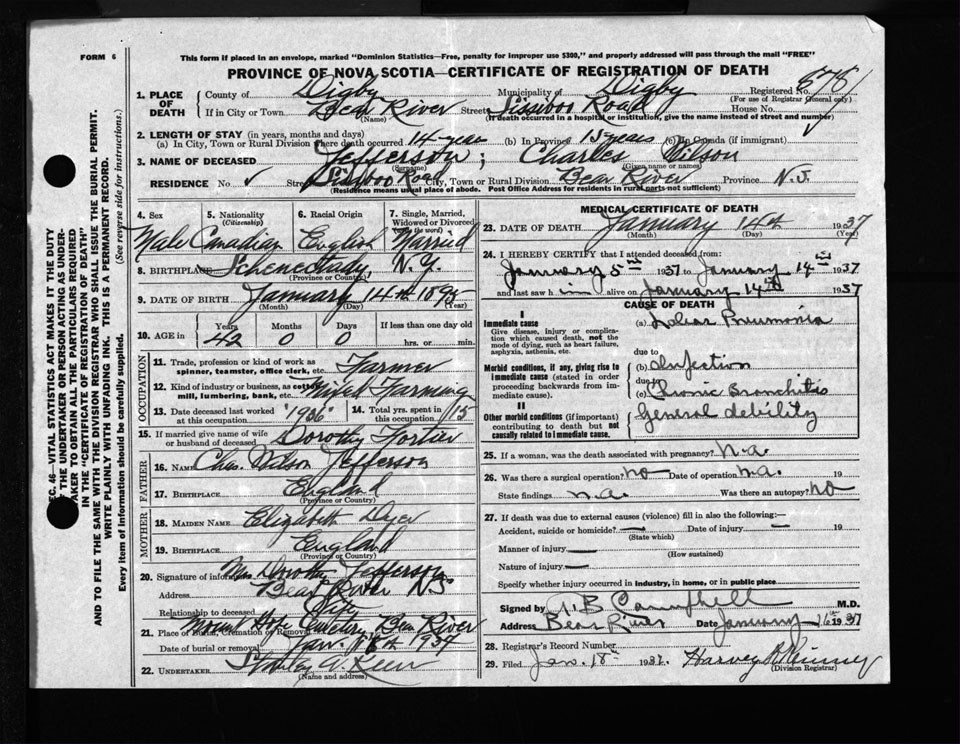 FORM 6
This form if placed in an envelope, marked "Dominion Statistics—Free, penalty for improper use $300," and properly addressed will pass through the mail "FREE"
PROVINCE OF NOVA SCOTIA—CERTIFICATE OF REGISTRATION OF DEATH
1. PLACE OF DEATH
County of Digby Municipality of Digby Registered No. 878
(For use of Registrar General only)
If in City or Town Bear River Street Sissiboo Road House No.
(Name) (If death occurred in a hospital or institution, give the name instead of street and number)
2. LENGTH OF STAY (in years, months and days)
(a) In City, Town or Rural Division where death occurred 14 years (b) In Province 15 years (c) In Canada (if immigrant)
3. NAME OF DECEASED Jefferson; Charles Wilson
(Surname) (Given name or names)
RESIDENCE No. ✓ Street Sissiboo Road City, Town or Rural Division Bear River Province N.S.
(Residence means usual place of abode. Post Office Address for residents in rural parts not sufficient)
4. Sex 5. Nationality (Citizenship) 6. Racial Origin 7. Single, Married, Widowed or Divorced (Write the word)
Male Canadian English Married
8. BIRTHPLACE Schenectady, N.Y.
(Province or Country)
9. DATE OF BIRTH January 14th 1895
(Month) (Day) (Year)
10. AGE in Years Months Days If less than one day old
42 0 0 hrs. or min.
OCCUPATION
11. Trade, profession or kind of work as spinner, teamster, office clerk, etc. Farmer
12. Kind of industry or business, as cotton mill, lumbering, bank, etc. Mixed Farming
13. Date deceased last worked at this occupation 1936 14. Total yrs. spent in this occupation 15
15. If married give name of wife or husband of deceased Dorothy Fortier
FATHER
16. NAME Chas. Wilson Jefferson
17. BIRTHPLACE England
(Province or Country)
MOTHER
18. MAIDEN NAME Elizabeth Dyer
19. BIRTHPLACE England
(Province or Country)
20. Signature of informant Mrs Dorothy Jefferson
Address Bear River NS
Relationship to deceased Wife
21. Place of Burial, Cremation or Removal Mount Hope Cemetery Bear River
Date of burial or removal Jan. 16th 1937
22. UNDERTAKER
(Name and address)
MEDICAL CERTIFICATE OF DEATH
23. DATE OF DEATH January 14th 1937
(Month) (Day) (Year)
24. I HEREBY CERTIFY that I attended deceased from:
January 5th 1937 to January 14th 1937
and last saw him alive on January 14th 1937
CAUSE OF DEATH
I
Immediate cause (a) Lobar Pneumonia
Give disease, injury or complication which caused death, not the mode of dying, such as heart failure, asphyxia, asthenia, etc.
due to
Morbid conditions, if any, giving rise to immediate cause (stated in order proceeding backwards from immediate cause).
(b) Infection
due to
(c) Chronic Bronchitis
II
Other morbid conditions (if important) contributing to death but not causally related to immediate cause.
General debility
25. If a woman, was the death associated with pregnancy? n.a.
26. Was there a surgical operation? no Date of operation n.a. 19
State findings n.a. Was there an autopsy? no
27. If death was due to external causes (violence) fill in also the following:—
Accident, suicide or homicide? — Date of injury — 19
(State which)
Manner of injury —
(How sustained)
Nature of injury —
Specify whether injury occurred in industry, in home, or in public place
Signed by B Campbell M.D.
Address Bear River Date January 16th 1937
28. Registrar's Record Number
29. Filed Jan. 18th 1937. Harvey
(Division Registrar)
SEC. 46—VITAL STATISTICS ACT MAKES IT THE DUTY OF THE UNDERTAKER OR PERSON ACTING AS UNDERTAKER TO OBTAIN ALL THE PARTICULARS REQUIRED IN THE "CERTIFICATE OF REGISTRATION OF DEATH"
AND TO FILE THE SAME WITH THE DIVISION REGISTRAR WHO SHALL ISSUE THE BURIAL PERMIT.
WRITE PLAINLY WITH UNFADING INK. THIS IS A PERMANENT RECORD.
Every item of information should be carefully supplied. (See reverse side for instructions.)